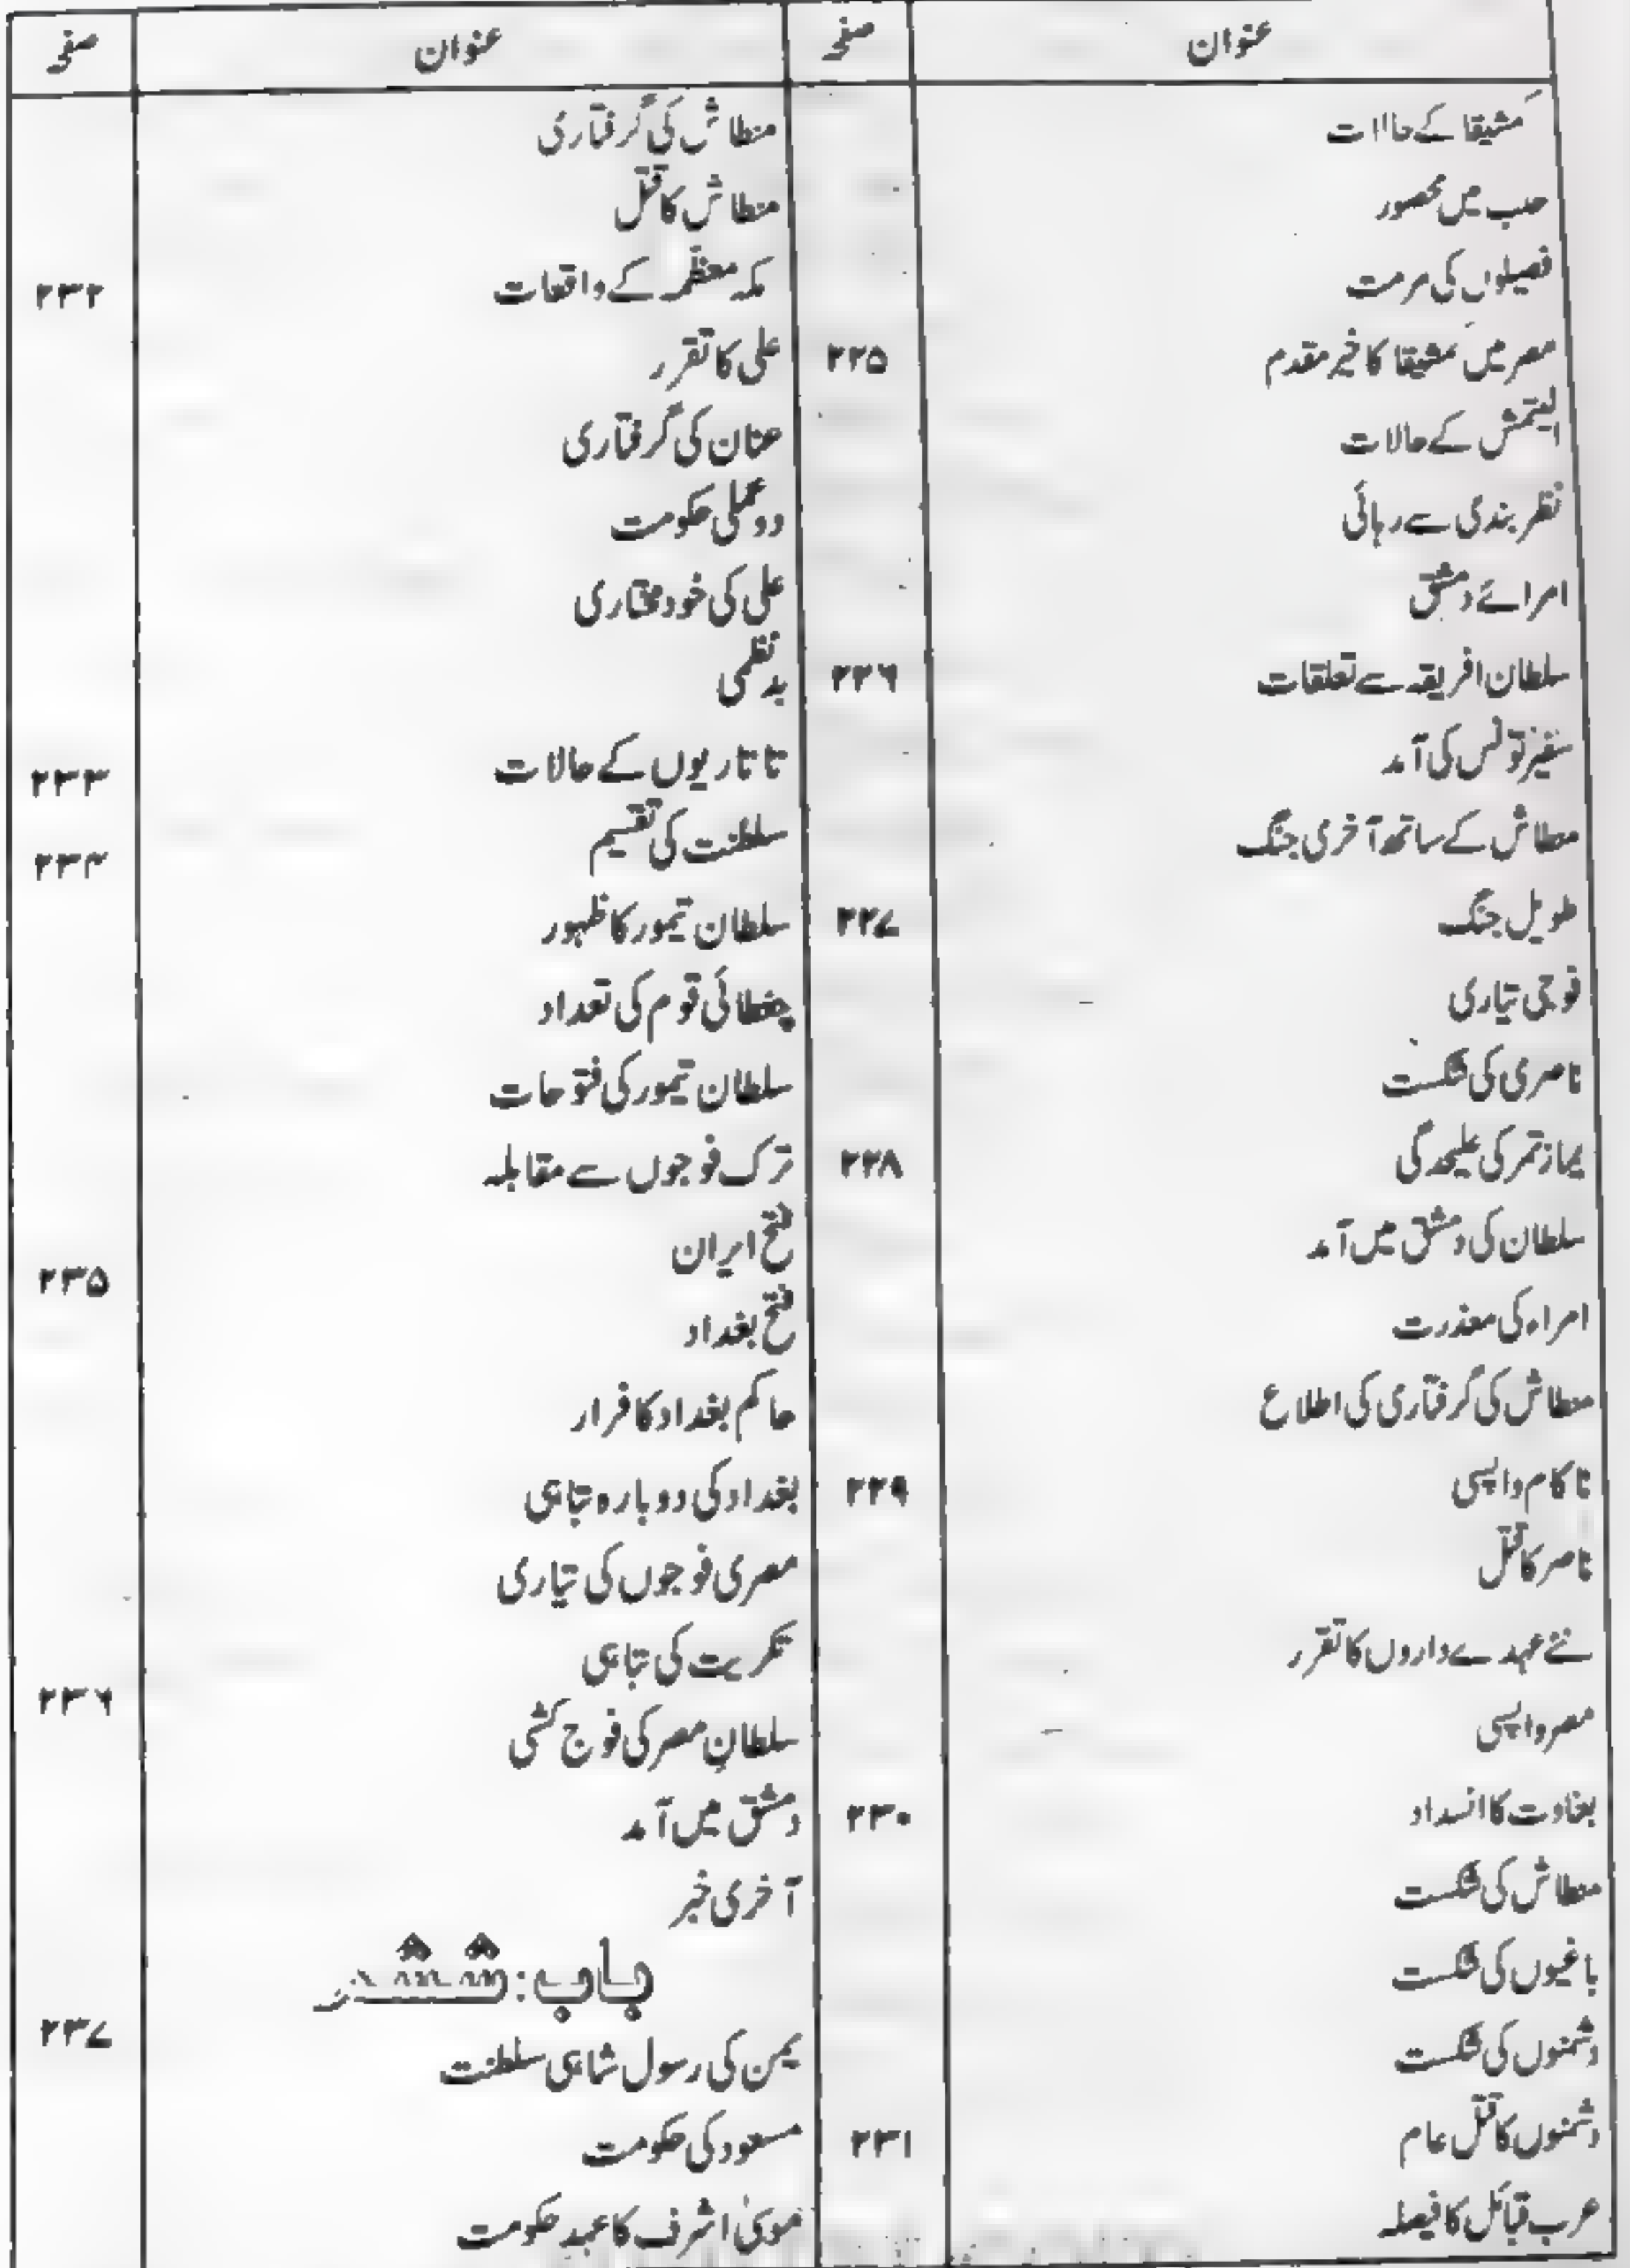 عنوان صفحہ
کمشیقا کے حالات
حلب میں محصور
فصیلوں کی مرمت
مصر میں کمشیقا کا خیر مقدم ۲۲۵
ایتمش کے حالات
نظر بندی سے رہائی
امرائے دمشق
سلطان افریقہ سے تعلقات ۲۲۶
سفیر تونس کی آمد
منطاش کے ساتھ آخری جنگ
طویل جنگ ۲۲۷
فوجی تیاری
ناصری کی شکست
یمازتمر کی علیحدگی ۲۲۸
سلطان کی دمشق میں آمد
امراء کی معذرت
منطاش کی گرفتاری کی اطلاع
ناکام واپسی ۲۲۹
ناصر کا قتل
نئے عہدے داروں کا تقرر
مصر واپسی
بغاوت کا انسداد ۲۳۰
منطاش کی شکست
باغیوں کی شکست
دشمنوں کی شکست
دشمنوں کا قتل عام ۲۳۱
عرب قبائل کا فیصلہ
عنوان صفحہ
منطاش کی گرفتاری
منطاش کا قتل
مکہ معظمہ کے واقعات ۲۳۲
علی کا تقرر
عنان کی گرفتاری
دو عملی حکومت
علی کی خود مختاری
بدنظمی
تاتاریوں کے حالات ۲۳۳
سلطنت کی تقسیم ۲۳۴
سلطان تیمور کا ظہور
چغطائی قوم کی تعداد
سلطان تیمور کی فتوحات
ترک فوجوں سے مقابلہ
فتح ایران ۲۳۵
فتح بغداد
حاکم بغداد کا فرار
بغداد کی دوبارہ تباہی
مصری فوجوں کی تیاری
تکریت کی تباہی ۲۳۶
سلطانِ مصر کی فوج کشی
دمشق میں آمد
آخری خبر
باب: ششم
یمن کی رسول شاہی سلطنت ۲۳۷
مسعود کی حکومت
موسیٰ اشرف کا عہدِ حکومت